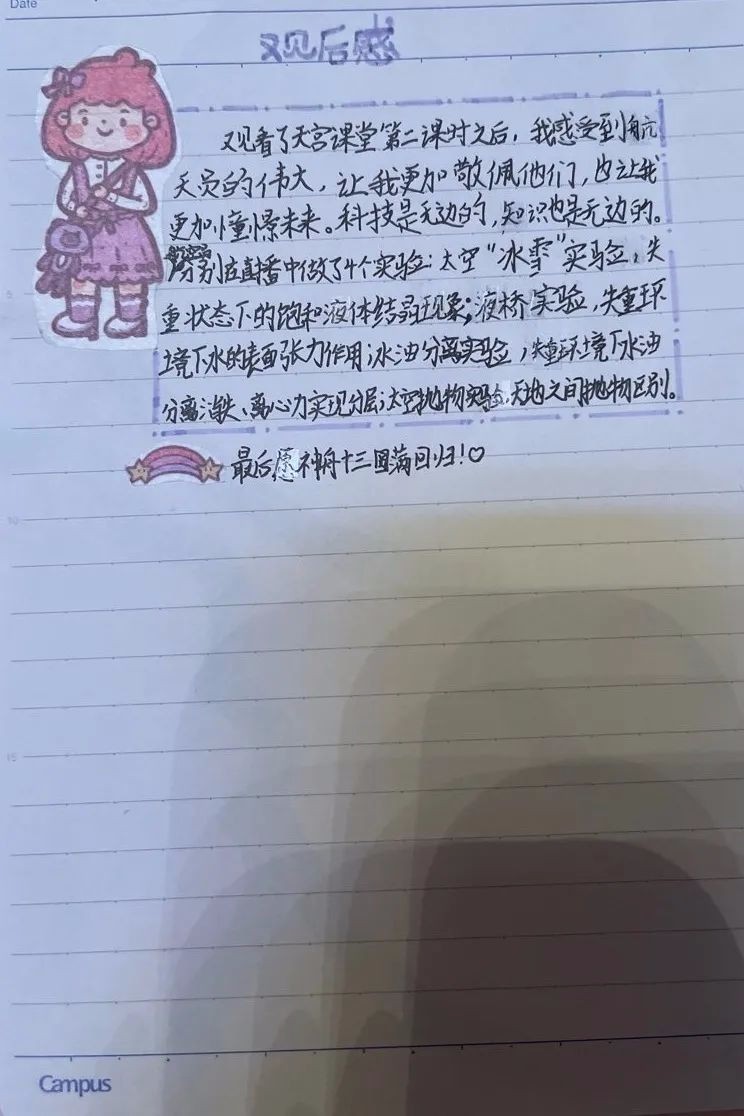 Date
观后感
观看了天宫课堂第二课时之后，我感受到航
天员的伟大，让我更加敬佩他们，也让我
更加憧憬未来。科技是无边的，知识也是无边的。
分别在直播中做了4个实验：太空“冰雪”实验，失
重状态下的饱和液体结晶现象；液桥实验，失重环
境下水的表面张力作用；水油分离实验，失重环境下水油
分离消失、离心力实现分层；太空抛物实验，天地之间抛物区别。
最后愿神舟十三圆满回归！♡
5
10
15
Campus